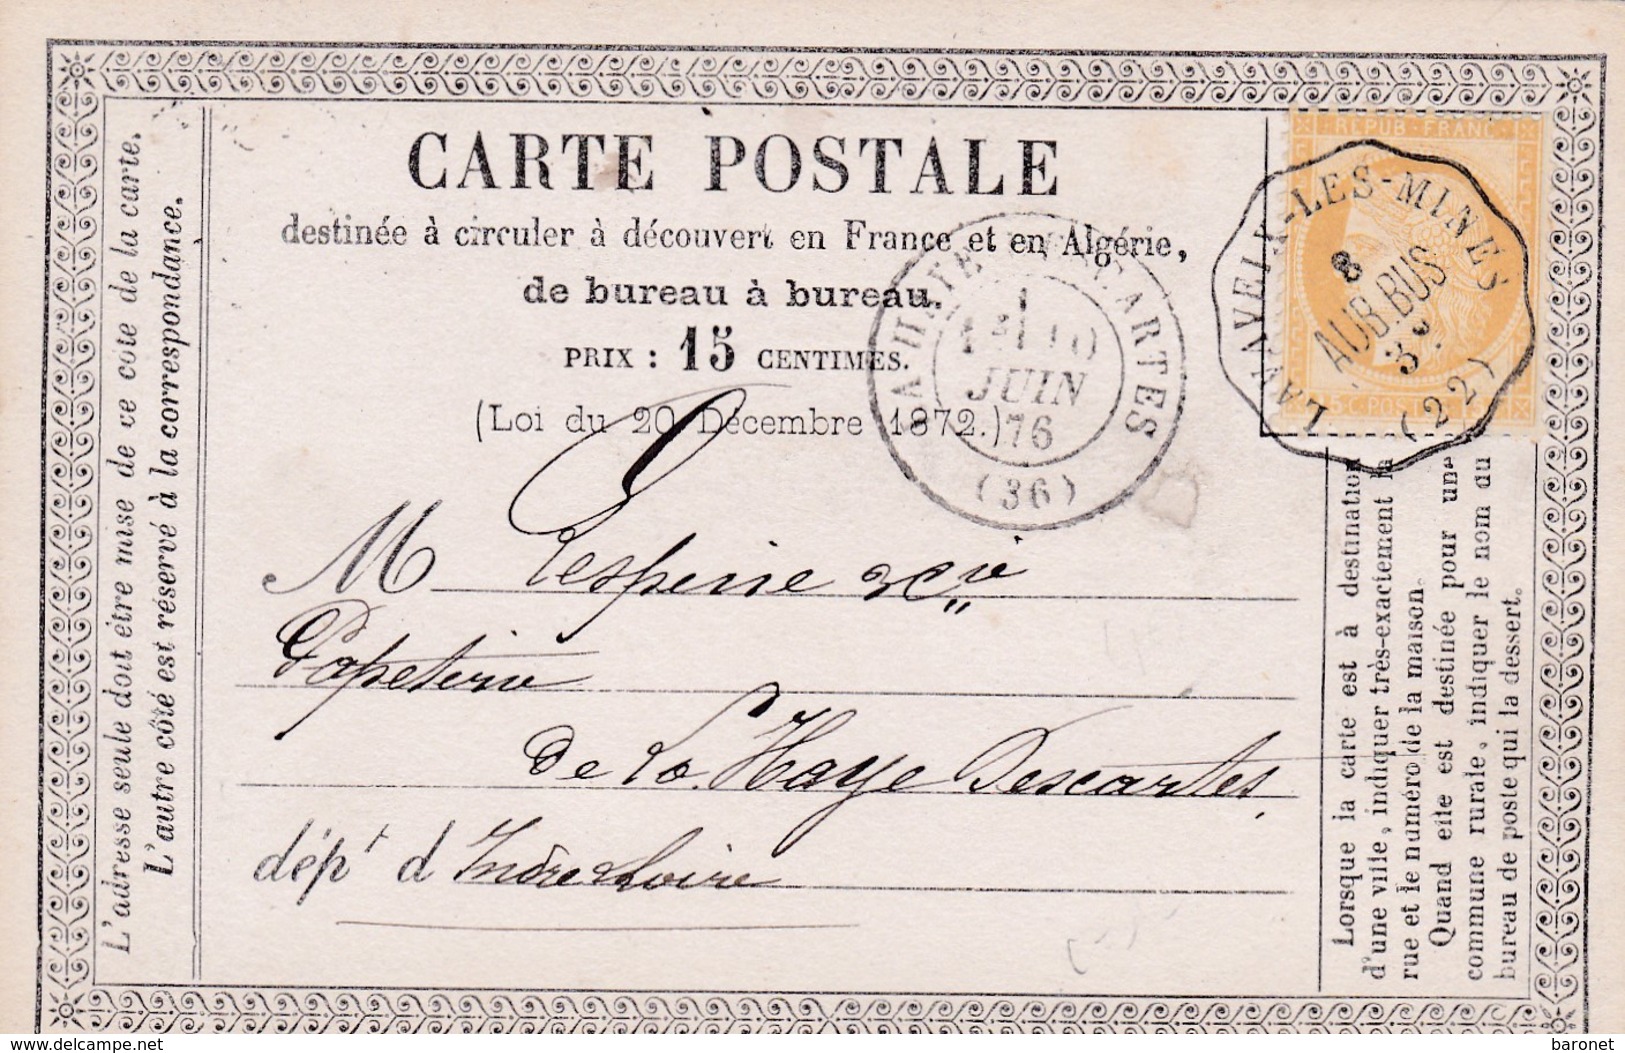 CARTE POSTALE
destinée à circuler à découvert en France et en Algérie,
de bureau à bureau.
PRIX : 15 CENTIMES.
(Loi du 20 Décembre 1872.)
REPUB · FRANC
15 C POSTES 15
LAVAVEIX-LES-MINES
8
AUB.BUS
3º
(22)
LA HAYE DESCARTES
10
JUIN
76
(36)
M
Papeterie
de La Haye Descartes,
dépt d Indre & Loire
L'adresse seule doit être mise de ce côté de la carte.
L'autre côté est réservé à la correspondance.
Lorsque la carte est à destination
d'une ville, indiquer très-exactement la
rue et le numéro de la maison.
Quand elle est destinée pour une
commune rurale, indiquer le nom du
bureau de poste qui la dessert.
delcampe.net
baronet